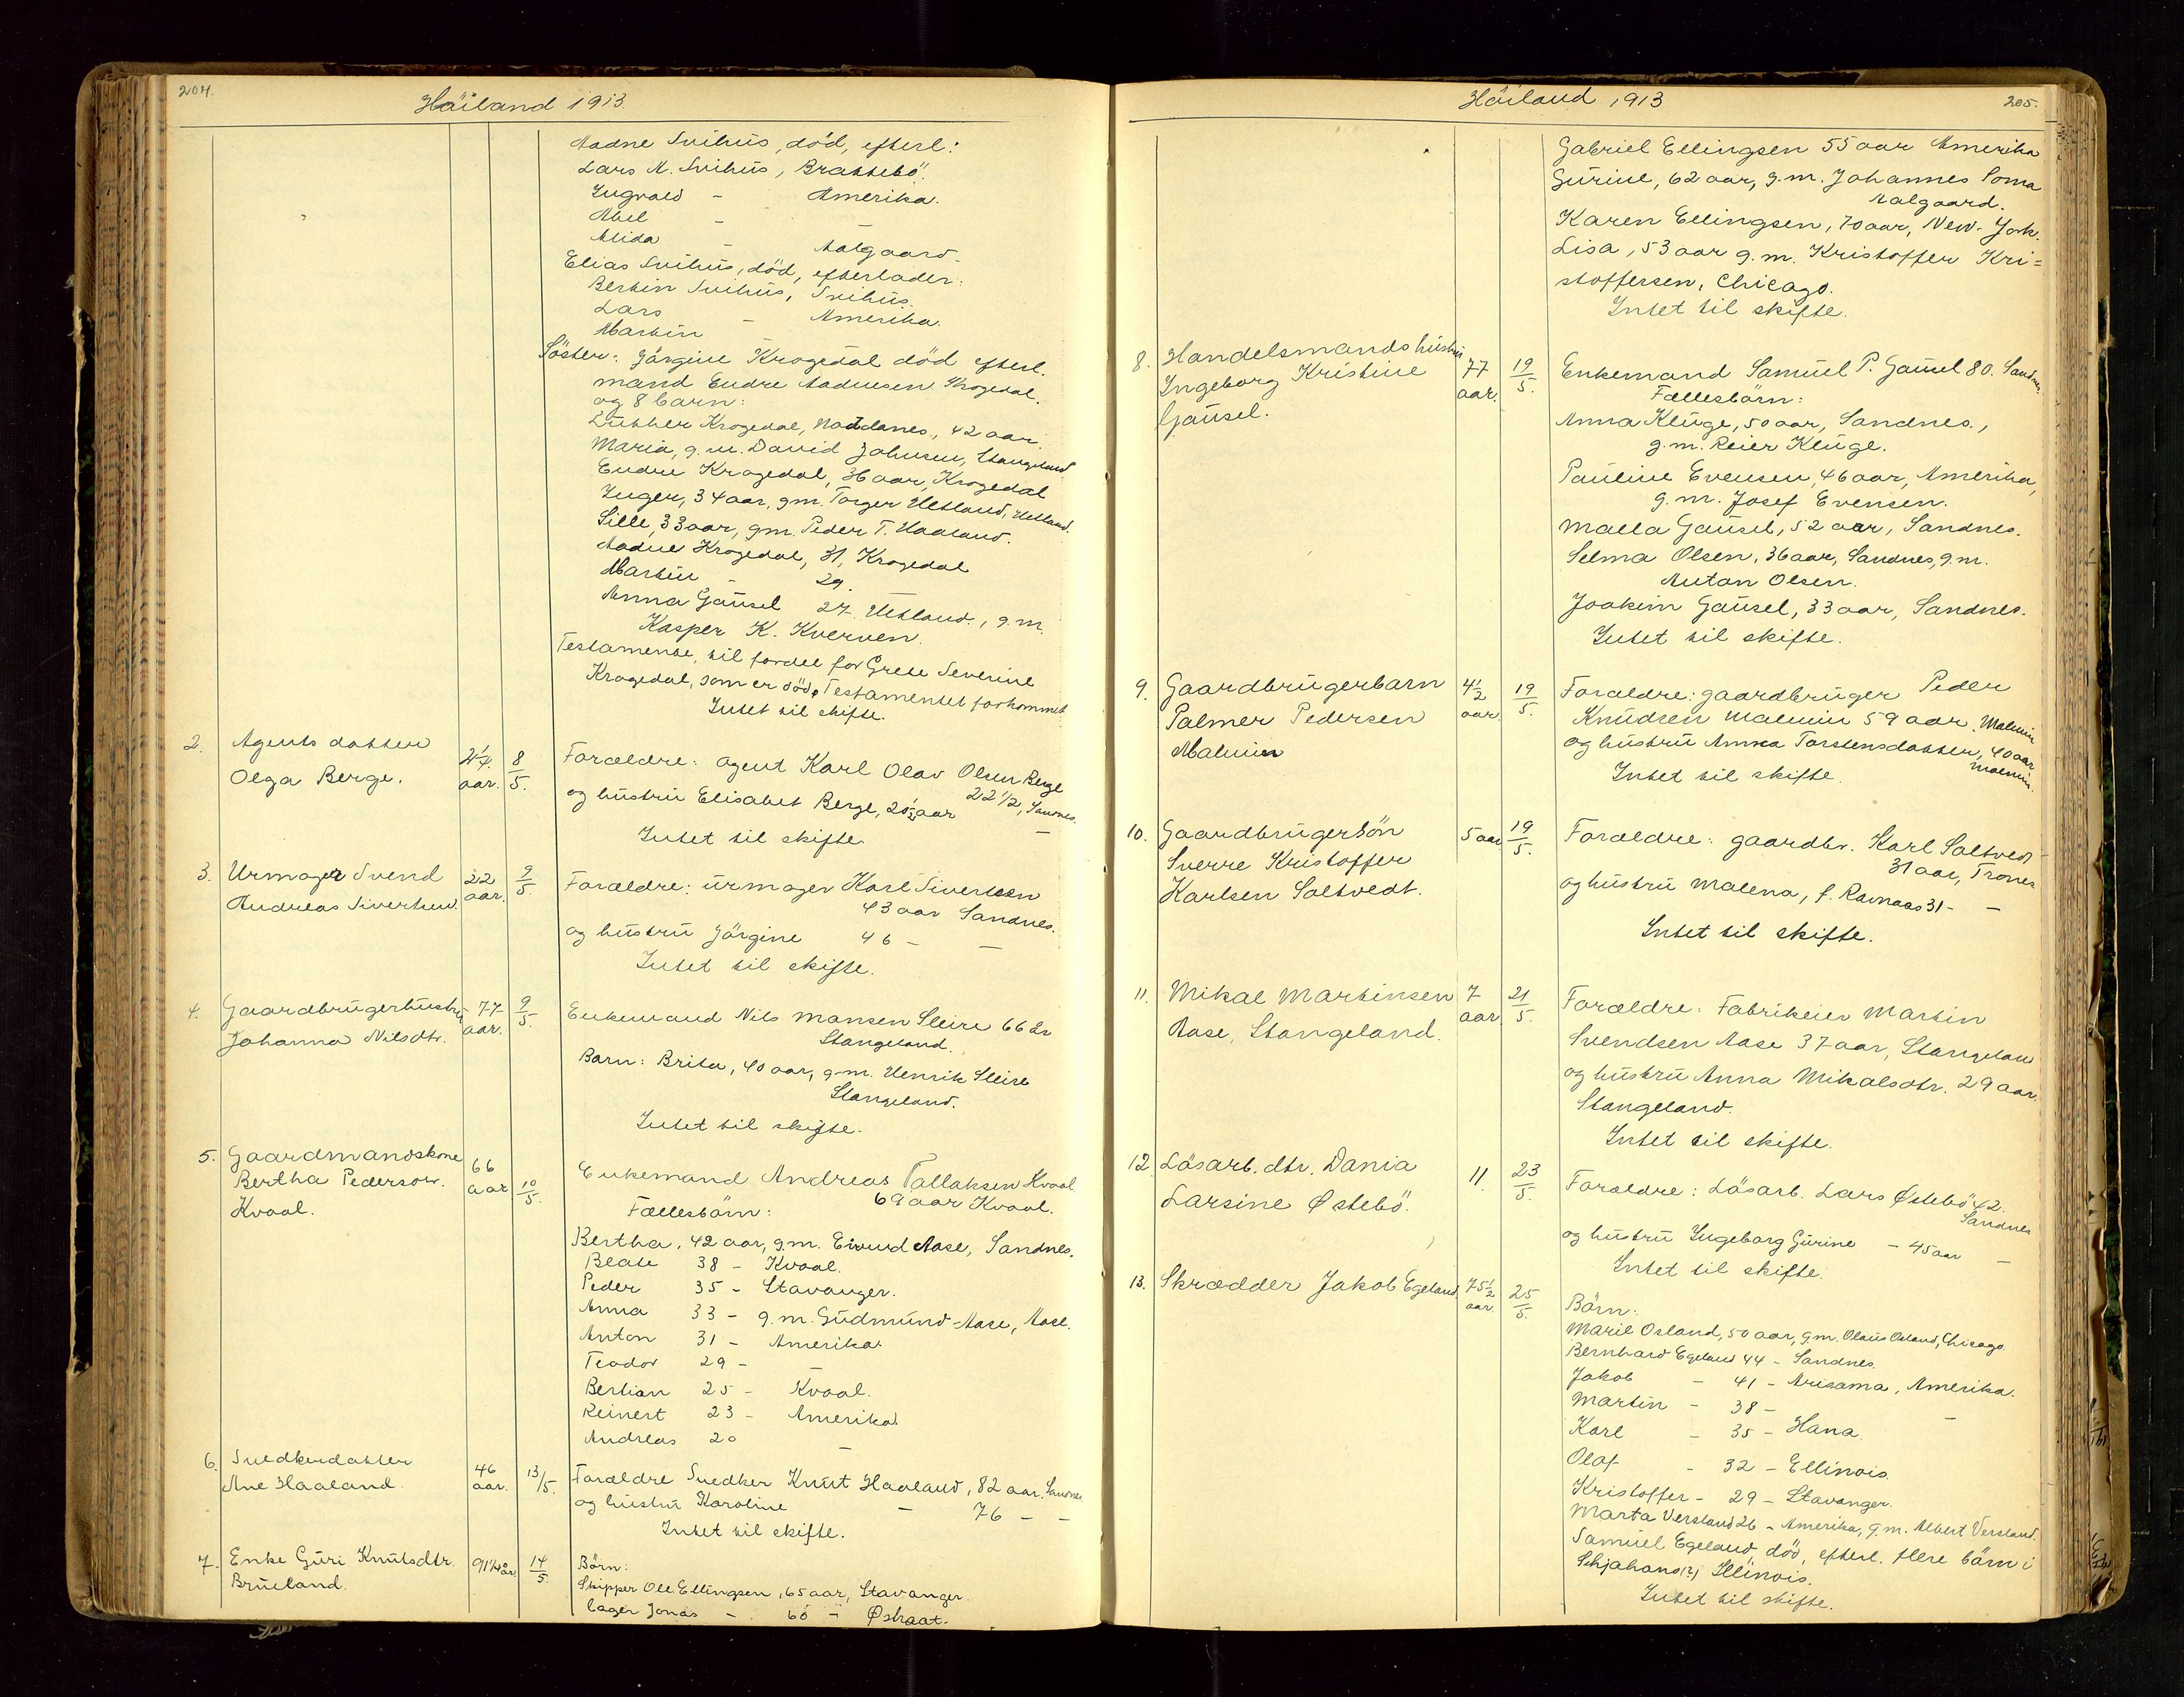 204.
Häiland 1913
Aadne Svihus, död, efterl:
Lars A. Svihus, Brattebö.
Ingvald - Amerika.
Abel - -
Alida - Aalgaard.
Elias Svihus, död, efterlader:
Bertin Svihus, Svihus.
Lars - Amerika.
Martin -
Söster: Jörgine Krogedal död efterl.
mand Endre Aadnesen Krogedal.
og 8 barn:
Krogedal, 42 aar.
Maria, g.m. David Johnsen, Stangeland
Endre Krogedal, 36 aar, Krogedal
Inger, 34 aar, g.m. Torger Uthland,
Sille, 33 aar, g.m. Peder T. Haaland.
Aadne Krogedal, 31, Krogedal
Martin - 29. -
Anna Gausel 27. , g.m.
Kasper K. Kverven.
Testamente, til fordel for Grete Severine
Krogedal, som er död. Testamentet forkommet
Intet til skifte.
2. Agents datter
Olga Berge.
aar. 8/5.
Forældre: agent Karl Olav Olsen Berge
22 1/2, Sandnes.
og hustru Elisabet Berge, 20 1/2 aar -
Intet til skifte.
3. Urmager Svend
Andreas Sivertsen.
22 aar. 9/5
Forældre: urmager Karl Sivertsen
43 aar Sandnes.
og hustru Jörgine 46 - -
Intet til skifte.
4. Gaardbrugerhustru
Johanna Nilsdtr.
77 aar. 9/5.
Enkemand Nils Monsen Sleire 66 år
Stangeland.
Barn: Brita, 40 aar, g.m. Henrik Sleire
Stangeland.
Intet til skifte.
5. Gaardmandskone
Bertha Pedersdtr.
Kvaal.
66 aar 10/5.
Enkemand Andreas Tallaksen Kvaal
69 aar Kvaal.
Fællesbörn:
Bertha, 42 aar, g.m. Eivind Aase, Sandnes.
Beate 38 - Kvaal.
Peder 35 - Stavanger.
Anna 33 - g.m. Gudmund Aase, Aase.
Anton 31 - Amerika
Teodor 29 - -
Bertian 25 - Kvaal.
Reinert 23 - Amerika
Andreas 20 -
6. Snedkerdatter
Ane Haaland.
46 aar. 13/5.
Forældre Snedker Knut Haaland, 82 aar. Sandnes
og hustru Karoline - 76 - -
Intet til skifte.
7. Enke Guri Knutsdtr.
Brueland.
91 1/2 år 14/5.
Börn:
Skipper Ole Ellingsen, 65 aar, Stavanger.
lager Jonas - 60 - Østraat.
Häiland 1913
205.
Gabriel Ellingsen 55 aar Amerika
Gurine, 62 aar, g.m. Johannes Soma
Aalgaard.
Karen Ellingsen, 70 aar, New-York.
Lisa, 53 aar g.m. Kristoffer Kri=
stoffersen, Chicago.
Intet til skifte.
8. Handelsmandshustru
Ingeborg Kristine
Gausel.
77 aar. 19/5.
Enkemand Samuel P. Gausel 80. Sandnes
Fællesbörn:
Anna Kluge, 50 aar, Sandnes.,
g.m. Reier Kluge.
Pauline Evensen, 46 aar, Amerika,
g.m. Josef Evensen.
Malla Gausel, 52 aar, Sandnes.
Selma Olsen, 36 aar, Sandnes, g.m.
Anton Olsen.
Joakim Gausel, 33 aar, Sandnes.
Intet til skifte.
9. Gaardbrugerbarn
Palmer Pedersen
Malmin
4 1/2 aar. 19/5.
Forældre: gaardbruger Peder
Knudsen Malmin 59 aar, Malmin
og hustru Anna Torstensdatter, 40 aar
Malmin.
Intet til skifte.
10. Gaardbrugersön
Sverre Kristoffer
Karlsen Saltvedt.
5 aar 19/5.
Forældre: gaardbr. Karl Saltvedt
31 aar, Trones
og hustru Malena, f. Ravnaas 31 - -
Intet til skifte.
11. Mikal Martinsen
Aase, Stangeland.
7 aar. 21/5.
Forældre: Fabrikeier Martin
Svendsen Aase 37 aar, Stangeland
og hustru Anna Mikalsdtr. 29 aar.
Stangeland.
Intet til skifte.
12. Lösarb. dtr. Dania
Larsine Østebö.
11. 23/5.
Forældre: Lösarb. Lars Østebö 42.
Sandnes
og hustru Ingeborg Gurine - 45 aar -
Intet til skifte.
13. Skrædder Jakob Egeland.
75 1/2 aar. 25/5.
Börn:
Marie Osland, 50 aar, g.m. Olaus Osland, Chicago.
Bernhard Egeland 44 - Sandnes.
Jakob - 41 - Arisama, Amerika.
Martin - 38 - -
Karl - 35 - Hana.
Olaf - 32 - Ellinois.
Kristoffer - 29 - Stavanger.
Marta Versland 26 - Amerika, g.m. Albert Versland.
Samuel Egeland, död, efterl. flere börn i
Sehjahans(?) Illinois.
Intet til skifte.